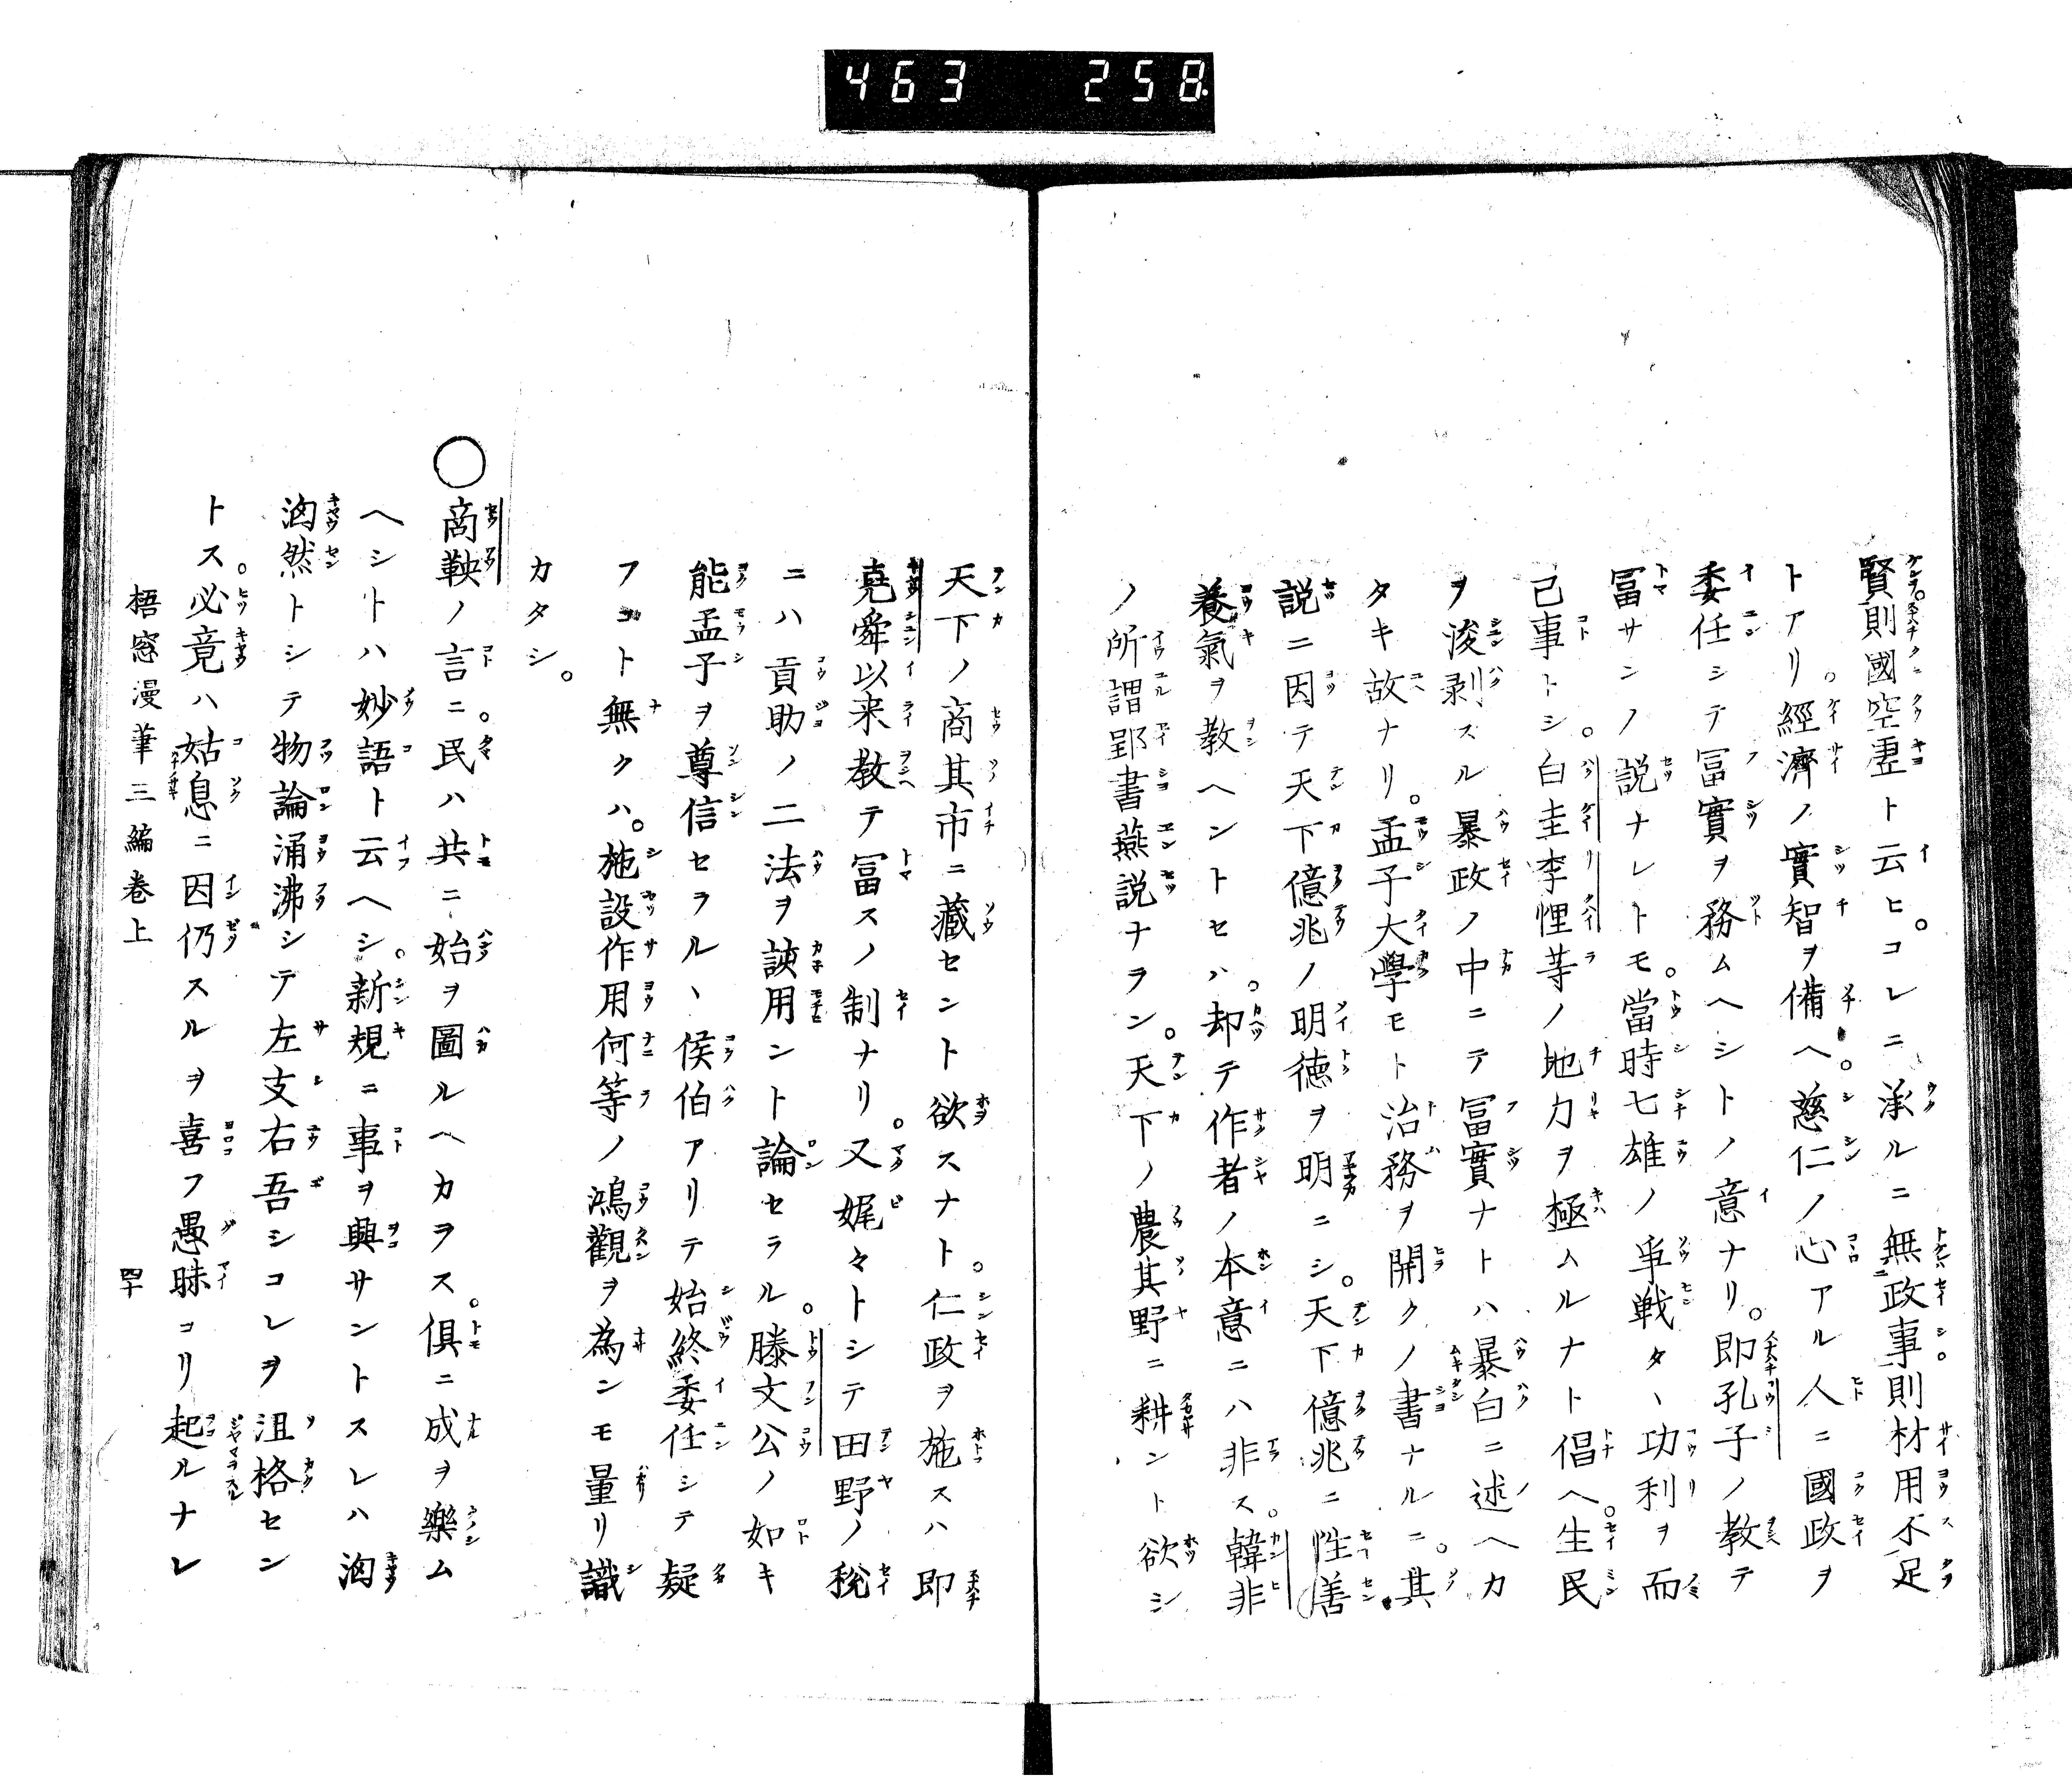 463 258
賢則國空虚ト云ヒ。コレニ承ルニ無政事則材用不足
トアリ。經濟ノ實智ヲ備ヘ。慈仁ノ心アル人ニ國政ヲ
委任シテ冨實ヲ務ムヘシトノ意ナリ。即孔子ノ教テ
冨サンノ説ナレトモ。當時七雄ノ爭戦タヽ功利ヲ而
己事トシ。白圭李悝等ノ地力ヲ極ムルナト倡ヘ。生民
ヲ浚剥スル暴政ノ中ニテ冨實ナトハ暴白ニ述ヘカ
タキ故ナリ。孟子大學モト治務ヲ開クノ書ナルニ。其
説ニ因テ天下億兆ノ明徳ヲ明ニシ。天下億兆ニ性善
養氣ヲ教ヘントセハ。却テ作者ノ本意ニハ非ス。韓非
ノ所謂郢書燕説ナラン。天下ノ農其野ニ耕ント欲シ
天下ノ商其市ニ藏セント欲スナト。仁政ヲ施スハ即
堯舜以来教テ冨スノ制ナリ。又娓々トシテ田野ノ税
ニハ貢助ノ二法ヲ誒用ント論セラル。滕文公ノ如キ
能孟子ヲ尊信セラルヽ侯伯アリテ始終委任シテ疑
フコト無クハ。施設作用何等ノ鴻觀ヲ為ンモ量リ識
カタシ。
〇商鞅ノ言ニ。民ハ共ニ始ヲ圖ルヘカラス。俱ニ成ヲ樂ム
ヘシトハ妙語ト云ヘシ。新規ニ事ヲ興サントスレハ洶
洶然トシテ物論涌沸シテ左支右吾シコレヲ沮格セン
トス。必竟ハ姑息ニ因仍スルヲ喜フ愚昧コリ起ルナレ
梧窓漫筆三編卷上 四十